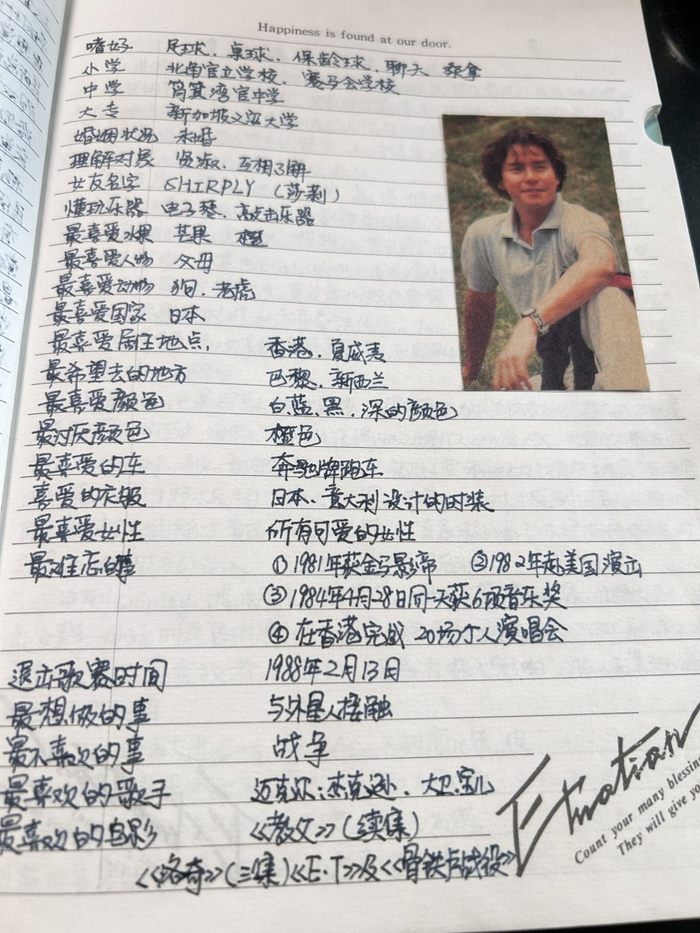 Happiness is found at our door.
嗜好 足球、桌球、保龄球、聊天 桑拿
小学 北角官立学校、赛马会学校
中学 筲箕湾官中学
大专 新加坡义安大学
婚姻状况 未婚
理解对象 贤淑、互相了解
女友名字 SHIRPLY (莎莉)
懂玩乐器 电子琴、敲击乐器
最喜爱水果 芒果 橙
最喜爱人物 父母
最喜爱动物 狗、老虎
最喜爱国家 日本
最喜爱居住地点, 香港、夏威夷
最希望去的地方 巴黎、新西兰
最喜爱颜色 白、蓝、黑、深的颜色
最讨厌颜色 橙色
最喜爱的车 奔驰牌跑车
喜爱的衣服 日本、意大利设计的时装
最喜爱女性 所有可爱的女性
最难忘的事 ①1981年获金马影帝 ②1982年赴美国演出
③1984年4月28日同一天获6项音乐奖
④在香港完成 20场个人演唱会
退出歌赛时间 1988年2月13日
最想做的事 与外星人接触
最不喜欢的事 战争
最喜欢的歌手 迈克尔·杰克逊、大卫·宝儿
最喜欢的电影 《教父》(续集)
《洛奇》(三集)《E·T》及《骨铁卢战役》
Emotian
Count your many blessin
They will give yo